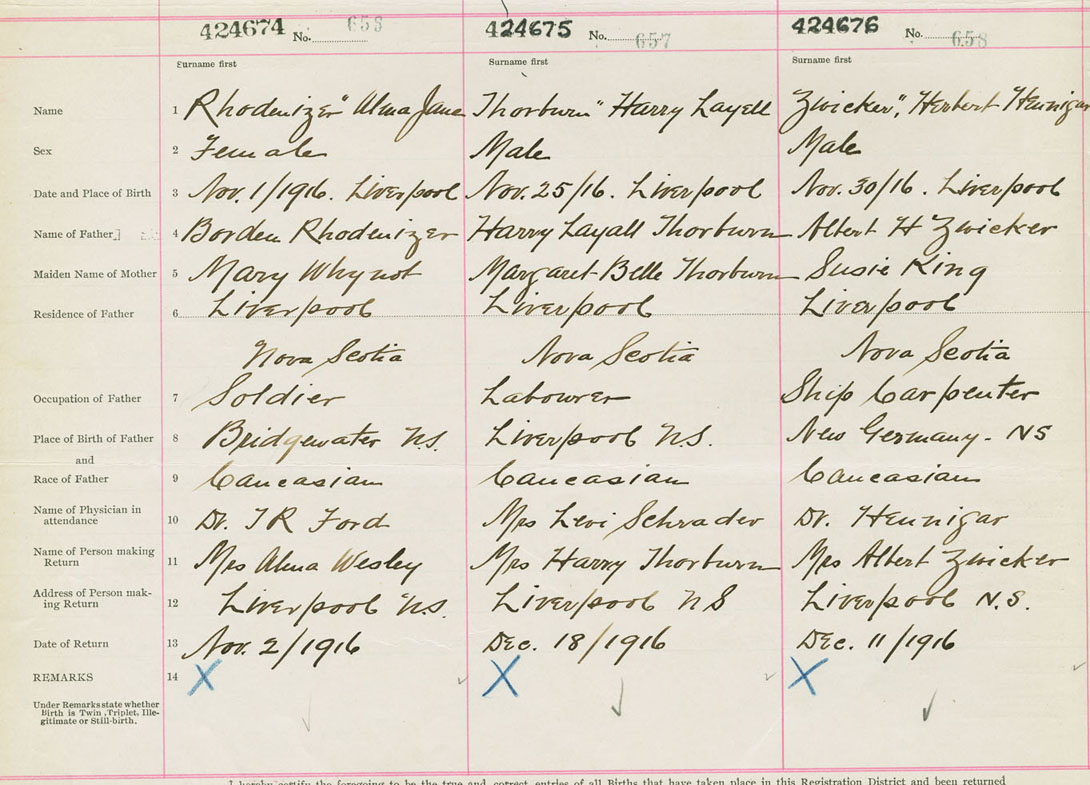 424674 No. 658 424675 No. 657 424676 No. 658
Surname first Surname first Surname first
Name 1 Rhodenizer" Alma Jane Thorburn" Harry Layell Zwicker", Herbert Hennigar
Sex 2 Female Male Male
Date and Place of Birth 3 Nov. 1/1916. Liverpool Nov. 25/16. Liverpool Nov. 30/16. Liverpool
Name of Father 4 Borden Rhodenizer Harry Layall Thorburn Albert H Zwicker
Maiden Name of Mother 5 Mary Whynot Margaret Belle Thorburn Susie King
Residence of Father 6 Liverpool Liverpool Liverpool
Nova Scotia Nova Scotia Nova Scotia
Occupation of Father 7 Soldier Labourer Ship Carpenter
Place of Birth of Father 8 Bridgewater N.S. Liverpool N.S. New Germany - NS
and
Race of Father 9 Caucasian Caucasian Caucasian
Name of Physician in
attendance 10 Dr. J R Ford Mrs Levi Schrader Dr. Hennigar
Name of Person making
Return 11 Mrs Alma Wesley Mrs Harry Thorburn Mrs Albert Zwicker
Address of Person mak-
ing Return 12 Liverpool N.S. Liverpool N S Liverpool N.S.
Date of Return 13 Nov. 2/1916 Dec. 18/1916 Dec. 11/1916
REMARKS 14 X X X
Under Remarks state whether
Birth is Twin, Triplet, Ille-
gitimate or Still-birth.
I hereby certify the foregoing to be the true and correct entries of all Births that have taken place in this Registration District and been returned